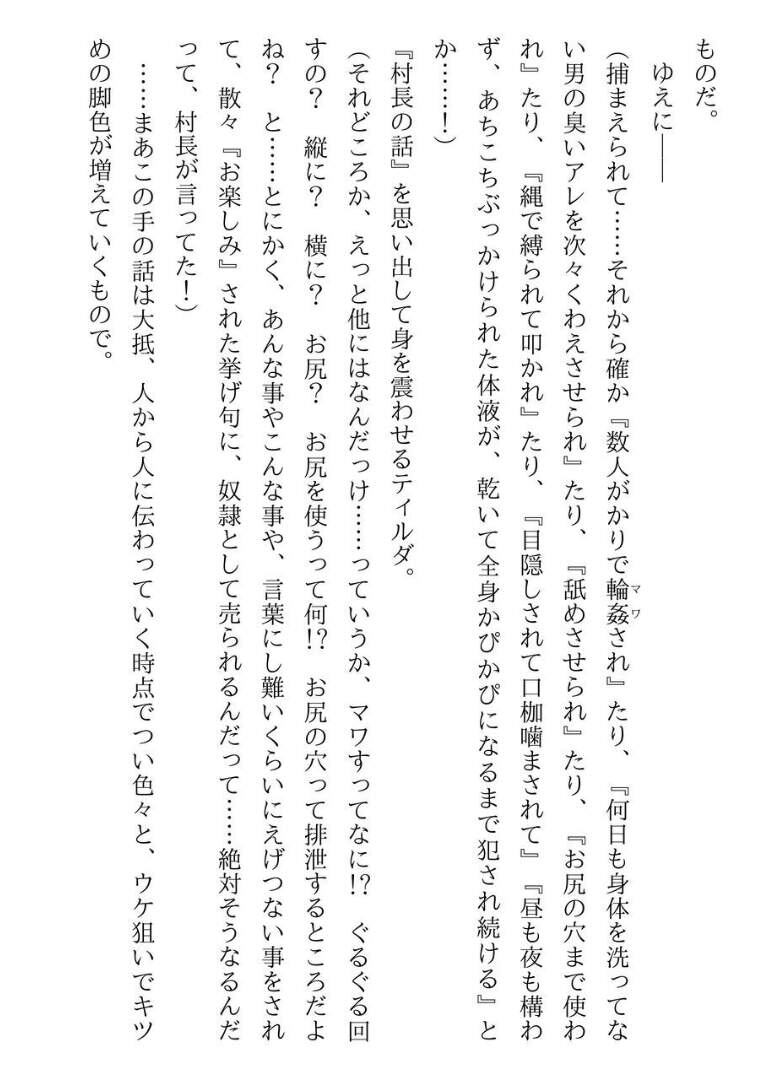 ものだ。
　ゆえに――
（捕まえられて……それから確か『数人がかりで輪姦され』たり、『何日も身体を洗ってな
い男の臭いアレを次々くわえさせられ』たり、『舐めさせられ』たり、『お尻の穴まで使わ
れ』たり、『縄で縛られて叩かれ』たり、『目隠しされて口枷噛まされて』『昼も夜も構わ
ず、あちこちぶっかけられた体液が、乾いて全身かぴかぴになるまで犯され続ける』と
か……！）
『村長の話』を思い出して身を震わせるティルダ。
（それどころか、えっと他にはなんだっけ……っていうか、マワすってなに!?　ぐるぐる回
すの？　縦に？　横に？　お尻？　お尻を使うって何!?　お尻の穴って排泄するところだよ
ね？　と……とにかく、あんな事やこんな事や、言葉にし難いくらいにえげつない事をされ
て、散々『お楽しみ』された挙げ句に、奴隷として売られるんだって……絶対そうなるんだ
って、村長が言ってた！）
　……まあこの手の話は大抵、人から人に伝わっていく時点でつい色々と、ウケ狙いでキツ
めの脚色が増えていくもので。
マワ